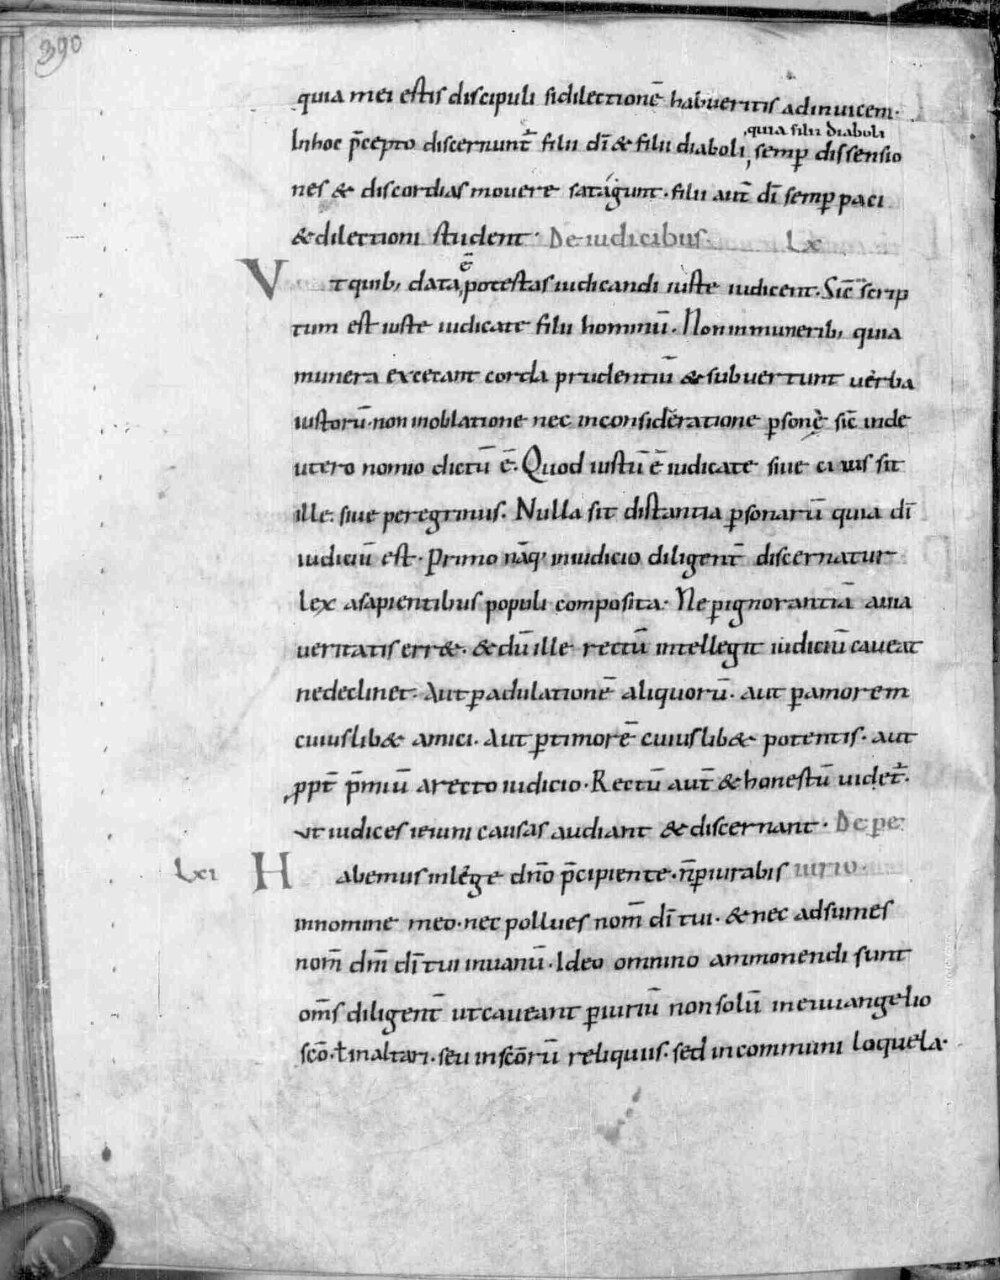 390
quia mei estis discipuli sidilectionē habueritis adinuicem·
quia filii diaboli
Inhoc p̄cepto discernunt̄ filii dī & filii diaboli, semp̄ dissensio
nes & discordias mouere satagunt· filii aut̄ dī semp̄ paci
&dilectioni student· De iudicibus Lx
Vt quib; data ē potestas iudicandi iuste iudicent· Sic̄ scrip
tum est iuste iudicate filii hominū· Non inmunerib; quia
munera excecant corda prudentiū & subuertunt uerba
iustorū· non inoblatione nec inconsideratione p̄sonę sic̄ inde
utero nomio dictū ē· Quod iustū ē iudicate siue ciuis sit
ille· siue peregrinus· Nulla sit distantia p̄sonarū quia dī
iudiciū est· Primo nāq; iniudicio diligent̄ discernatur
lex asapientibus populi composita· Ne p̄ignorantiā a uia
ueritatis err&· & dū ille rectū intellegit iudiciū caueat
nedeclinet· Aut p̄adulationē aliquorū· aut p̄amorem
cuiuslib& amici· Aut p̄timorē cuiuslib& potentis· aut
ppt̄ p̄miū arecto iudicio· Rectū aut̄ & honestū uidet̄·
ut iudices ieiuni causas audiant & discernant· De pe
Lxi Habemus inlege dn̄o p̄cipiente· n̄ p̄iurabis iurio·
innomine meo· nec pollues nom̄ dī tui· & nec adsumes
nom̄ dn̄i dī tui inuanū· Ideo omnino ammonendi sunt
om̄s diligent̄ ut caueant p̄iuriū non solū ineuuangelio
sc̄o· ł inaltari· seu insc̄orū reliquiis· sed incommuni loquela·